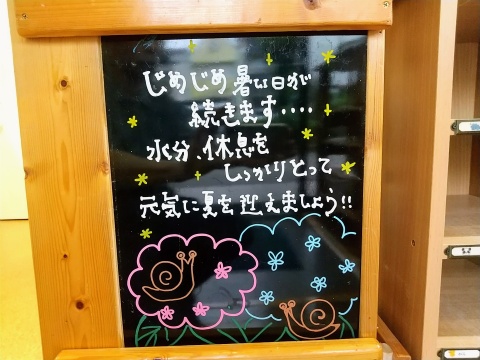 じめじめ暑い日が
続きます‥‥
水分、休息を
しっかりとって
元気に夏を迎えましょう!!